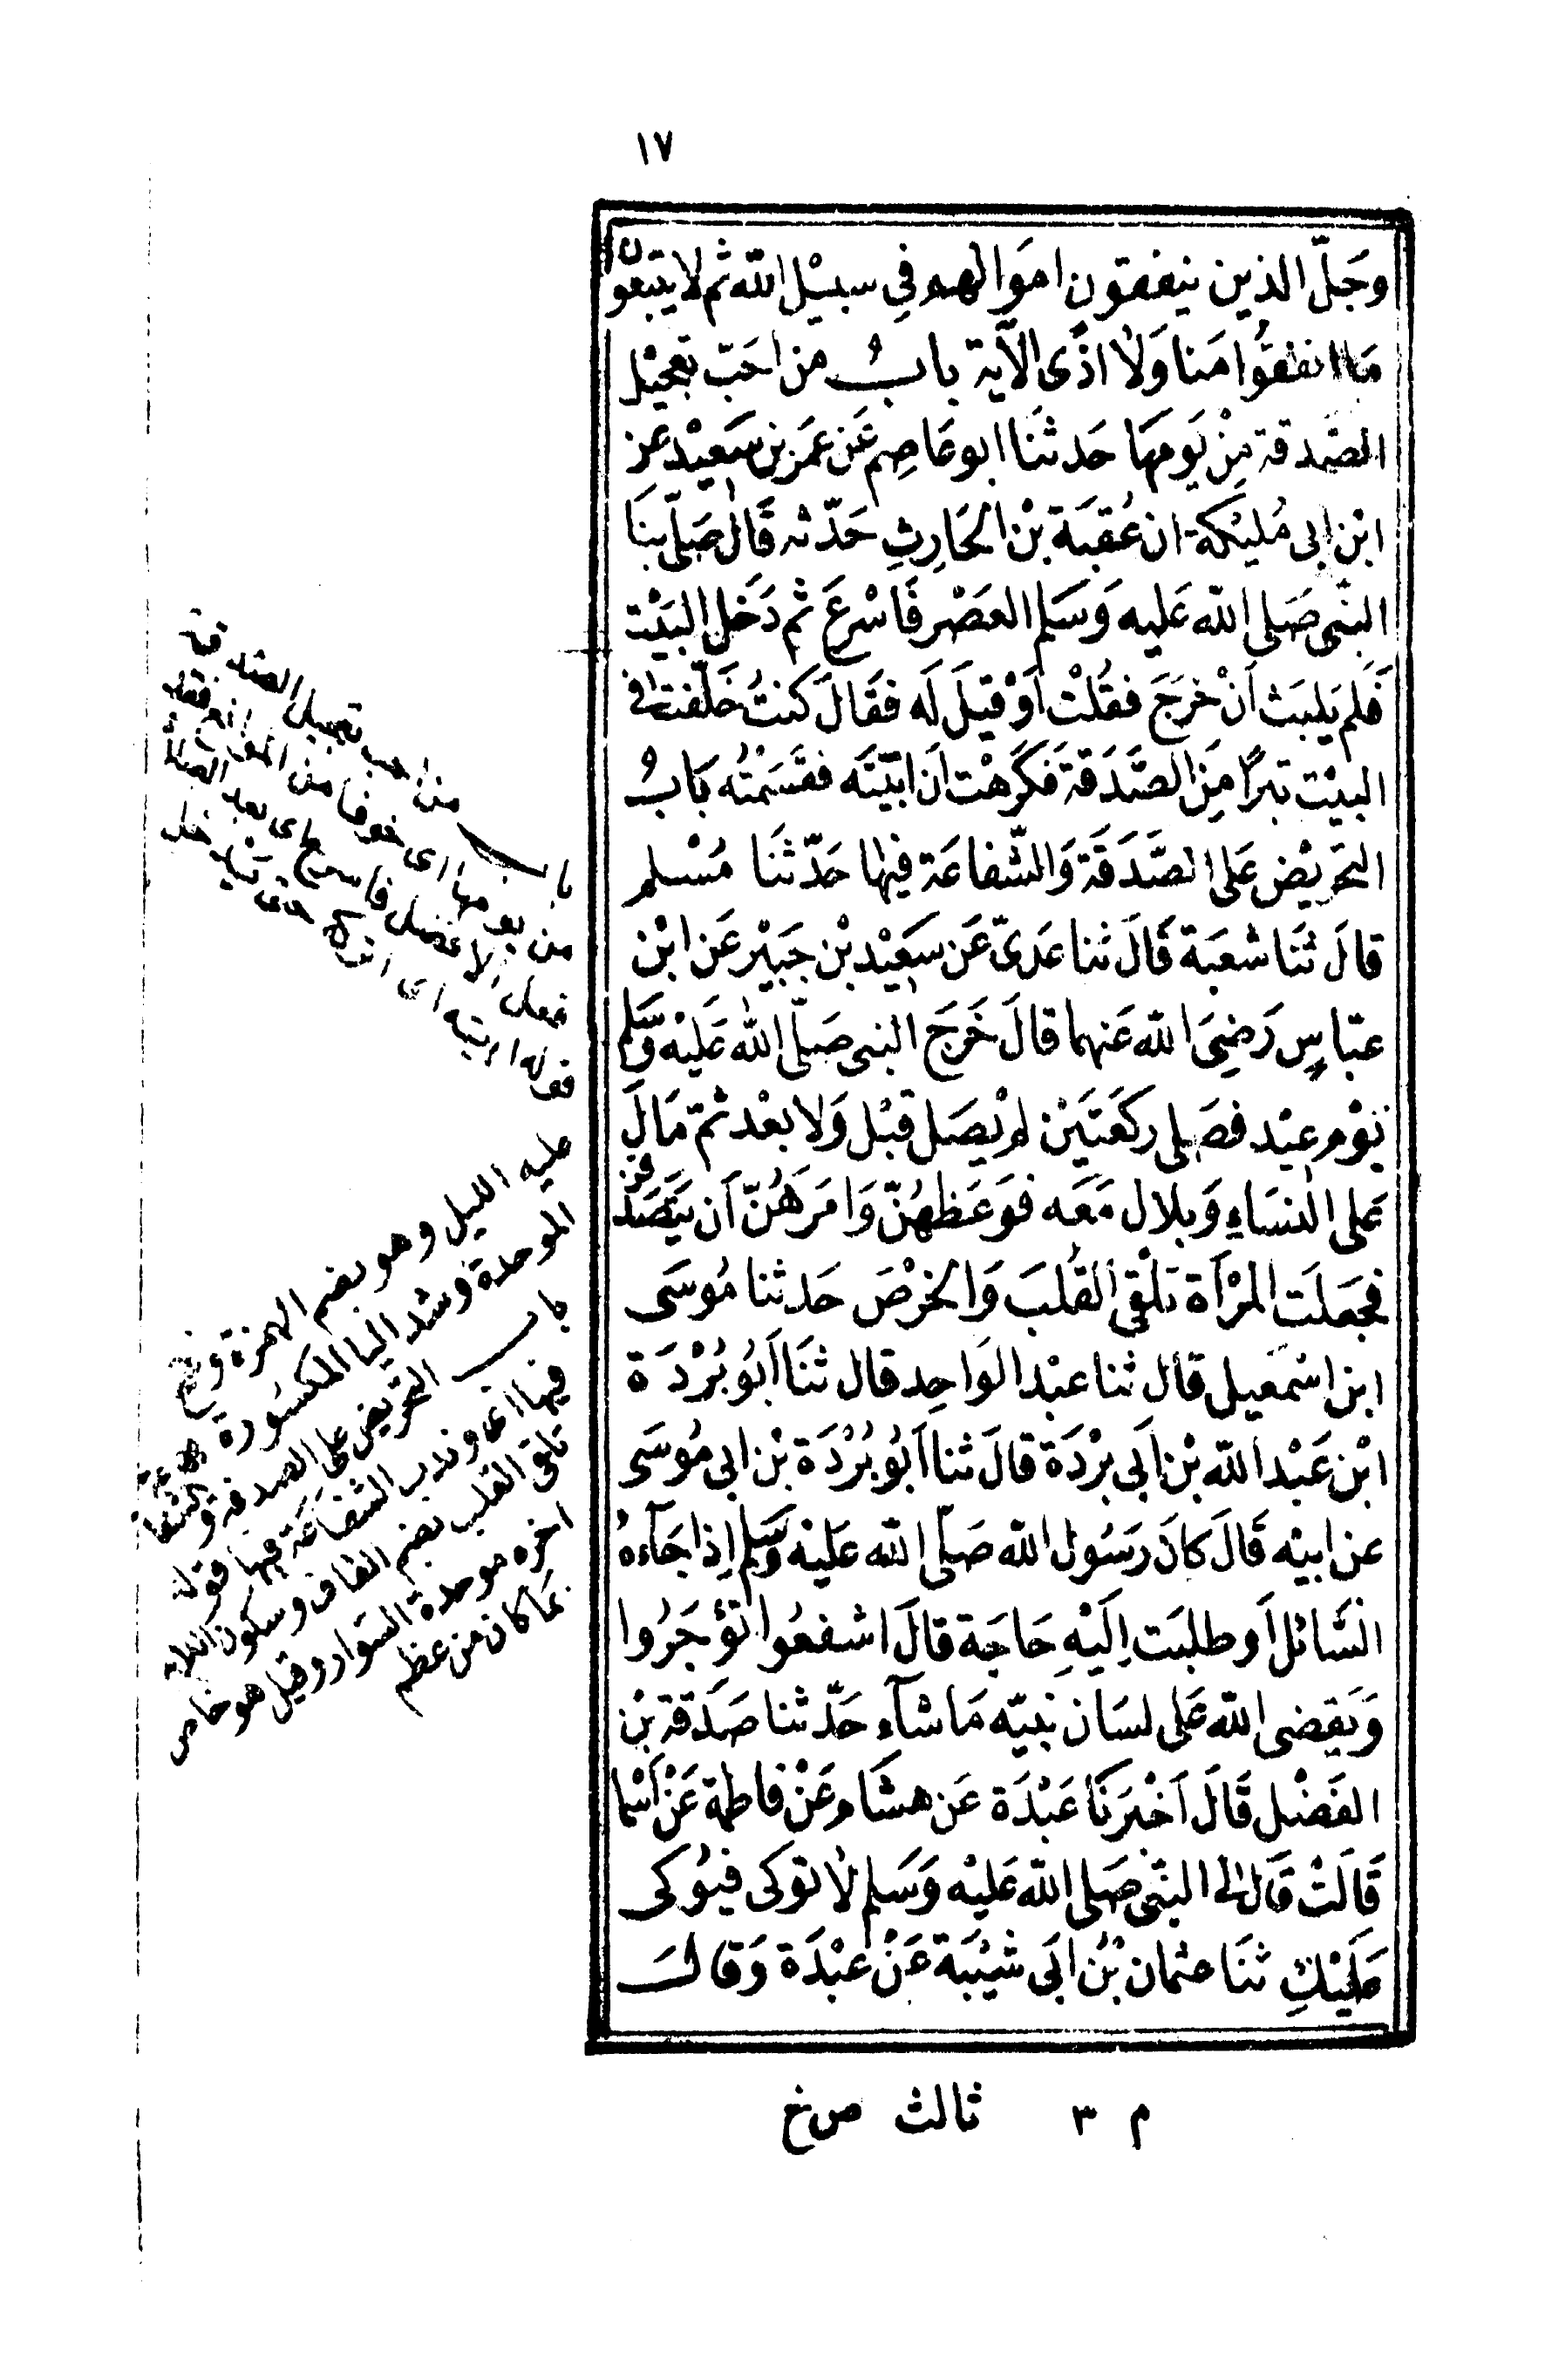 ١٧
وجَلّ الذين ينفقون اموالهم في سبيْل الله ثم لا يتبعون
مَا انفقُوا مَنا وَلا اذًى الآية بابُ من احَبّ تعجيْل
الصَّدقة مِنْ يَومهَا حَدثنَا ابو عَاصِم عَن عمَر بن سَعيْد عن
ابْن ابى مُليْكة ان عُقبَة بْن الحَارِثِ حَدّثه قَالَ صَلّى بنَا
النبَّى صَلى الله عَليه وَسَلم العَصْر فَاسْرعَ ثم دَخَل البَيْت
فَلم يَلبَث اَنْ خَرَجَ فقُلْت اَوْ قيَل لَه فقَالَ كنتُ خَلّفت فى
البيْت تبرًا مِنَ الصَّدَقة فَكَرهْت اَن ابَيّتَه فقسَمْتُه بَابُ
التحَريْض عَلى الصَّدَقَة وَالشّفاعَة فيها حَدّثنَا مُسْلم
قالَ ثنَا شعبَة قَالَ ثنا عَدىّ عَن سَعيْد بْن جَبيْر عَن ابْن
عبّاسٍ رَضِىَ الله عَنهما قالَ خَرَجَ النبى صَلّى اللهُ عَليْه وَسَلم
يَوْم عيْد فصَلى ركعَتيَنْ لم يْصَل قبْل وَلا بعْد ثمّ مَالَ
عَلى النسَاءِ وَبلال مَعَه فوَعَظهُنّ وَامَرَهُنّ اَن يَتَصَدقن
فجعَلَت المرْاَة تلْقى القُلبَ وَالخرْصَ حَدثنا مُوسَى
ابن اسْمَعيل قالَ ثنا عبْد الوَاحِد قال ثنَا اَبُو بُرْدَة
ابْن عَبْد الله بْن اَبى بْردَة قالَ ثنا اَبُو بُرْدَة بْن ابى مُوسَى
عن ابيْه قَالَ كانَ رَسُول الله صَلّى الله عَليْه وَسَلم اِذا جَآءهُ
السَّائل اَو طلبَت اِلَيْهِ حَاجَة قالَ اشفعُوا تؤجَرُوا
وَيَقضى الله عَلى لسَان نبيّه مَا شآء حَدّثنا صَدَقة بْن
الفَضْل قَالَ اَخْبَرنَا عَبْدَة عَن هشَام عَنْ فاطمة عَنْ اَسْما
قَالَتْ قَالَ لى النبَّى صَلى الله عَليْه وَسَلم لا توكى فيُوكى
عَلَيْكِ ثنَا عثمان بْن ابَى شيْبَة عَنْ عبْدَة وَقالَ
باب من احب تعجيل الصدقة
من يومها اى خوفا من
فعل الافضل فاسرع اى بعد الصلاة
قوله ابيته اى اتركه حتى يدخل
عليه الليل وهو بضم الهمزة وفتح
الموحدة وشد اليا المكسورة
باب التحريض على الصدقة والشفاعة
فيها اى وندب الشفاعة فيها قوله
تلقى القلب بضم القاف وسكون اللام
اخره موحدة السوار وقيل هو خاص
بما كان من عظم
م ٣ ثالث ص خ